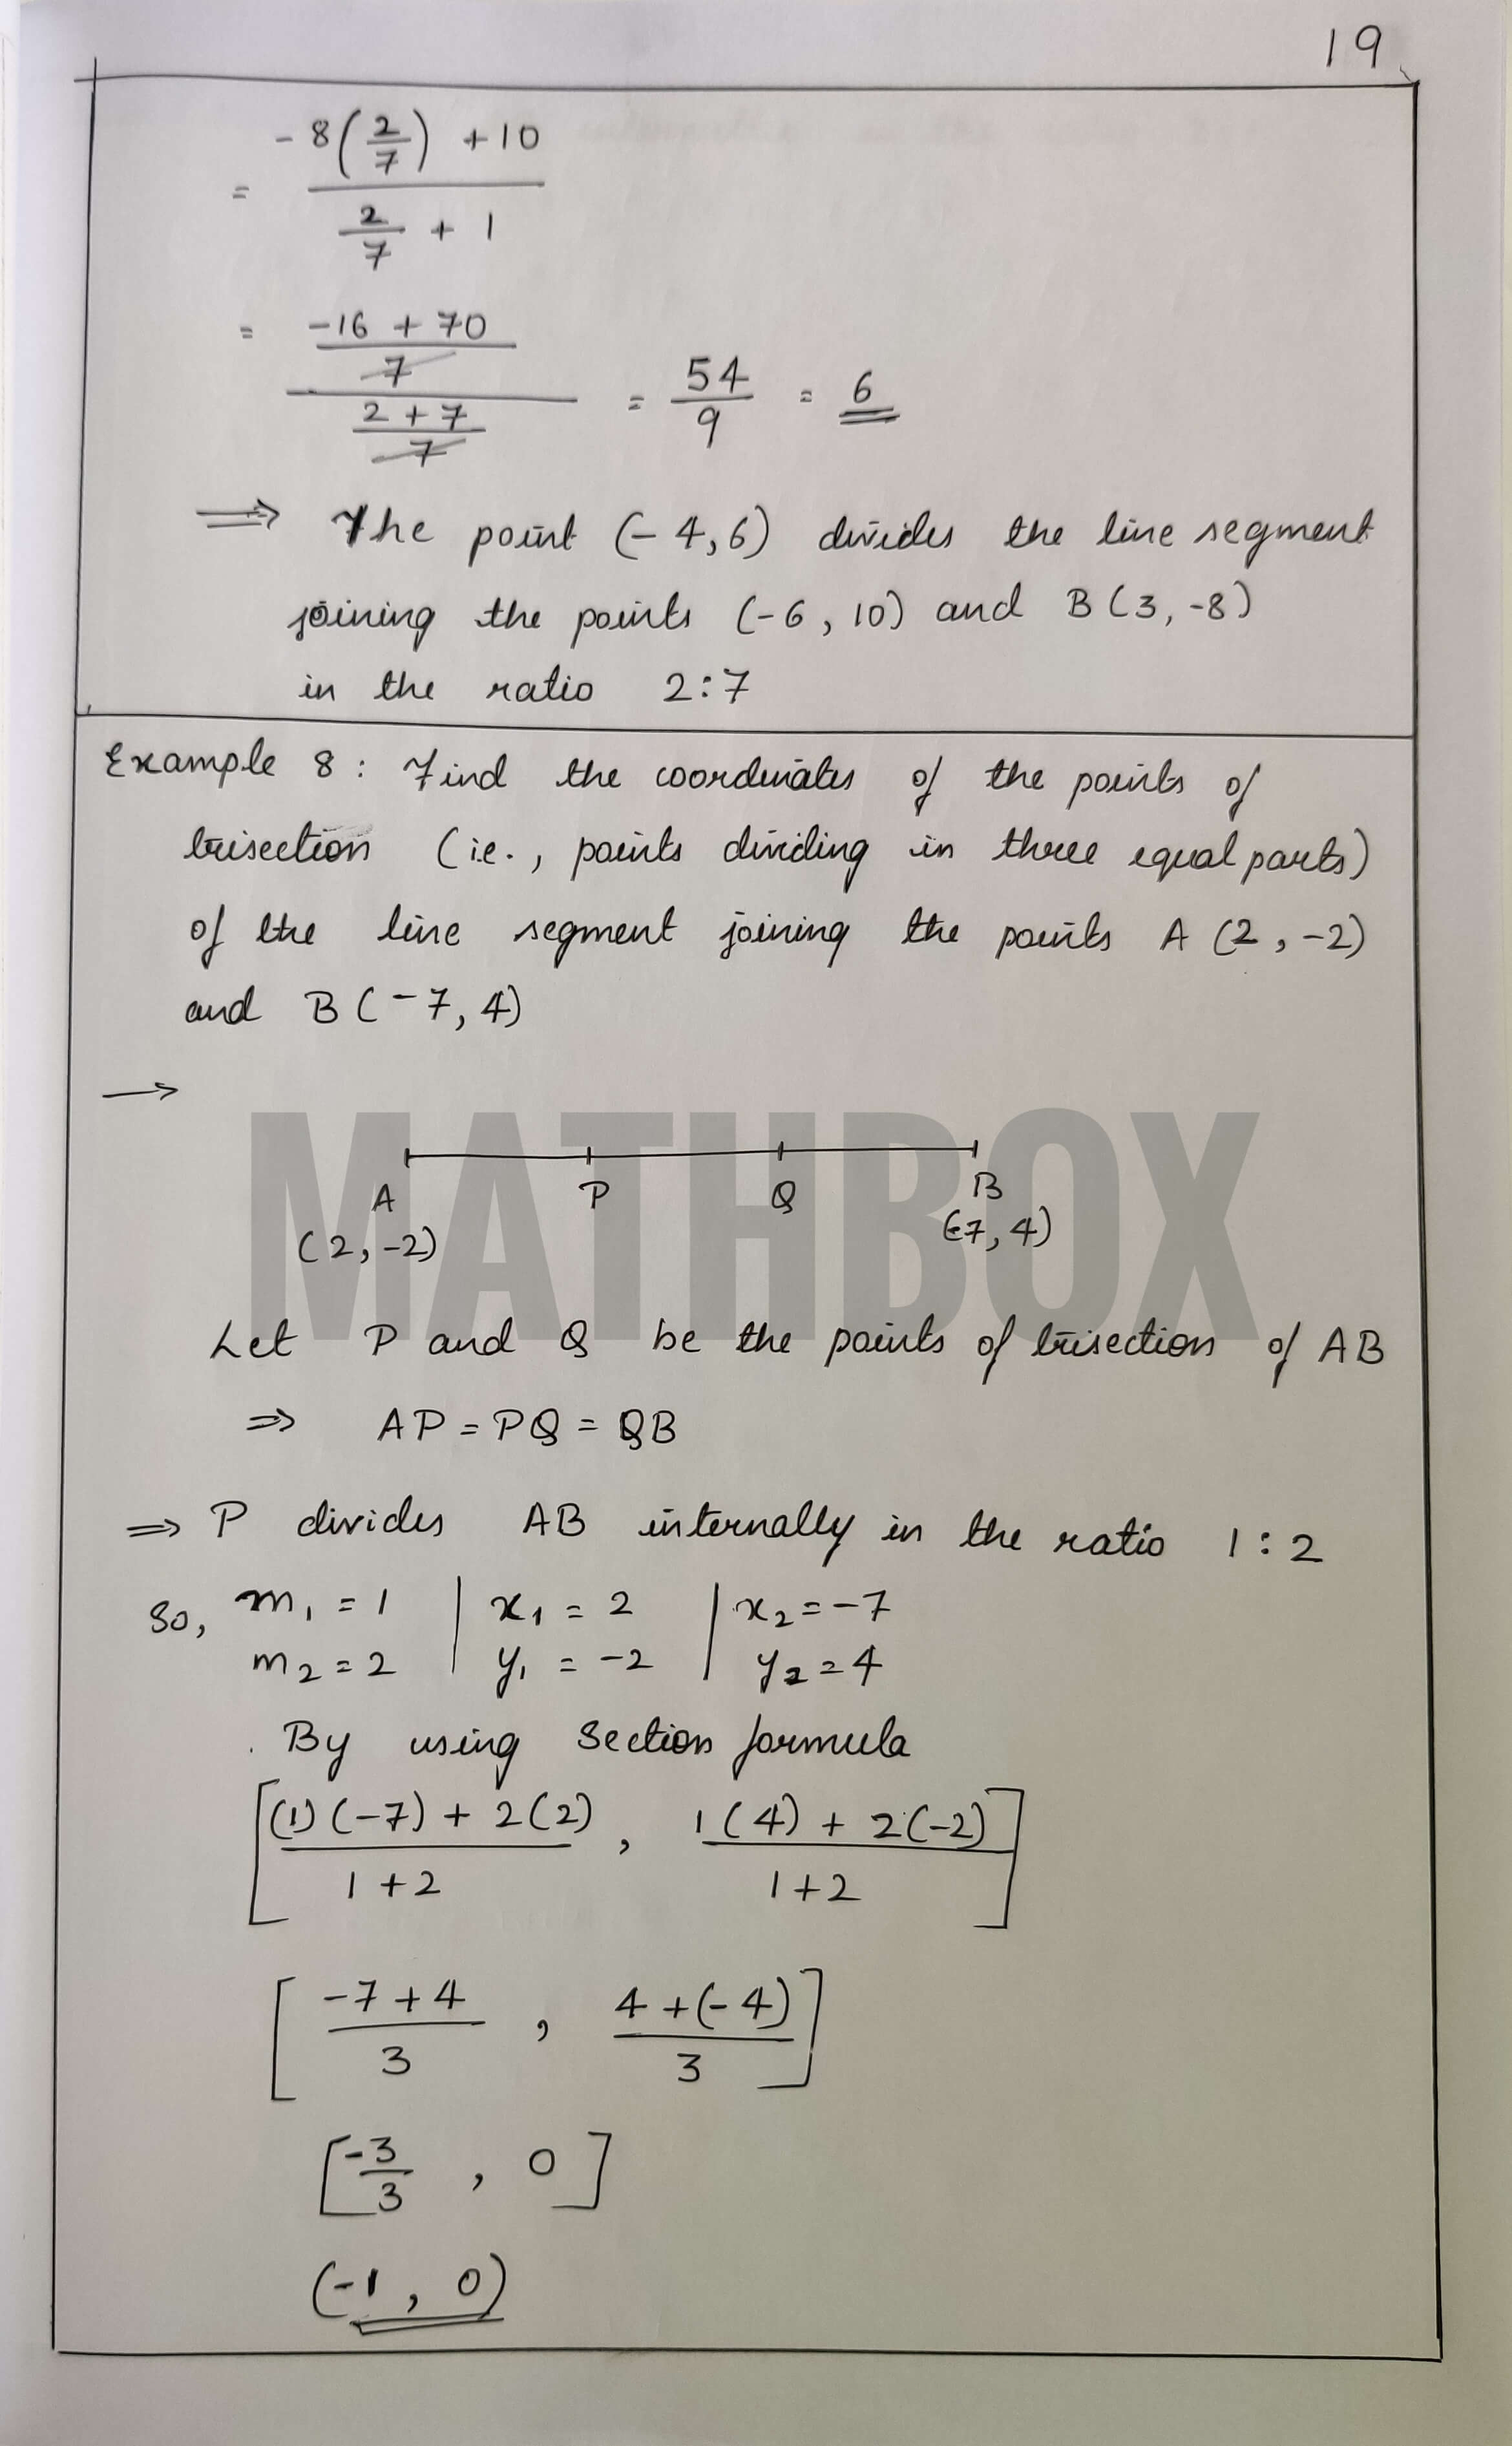 19
= (-8(2/7) + 10) / (2/7 + 1)
= ((-16 + 70)/7) / ((2 + 7)/7) = 54/9 = 6
⟹ The point (-4, 6) divides the line segment
joining the points (-6, 10) and B(3, -8)
in the ratio 2:7
Example 8 : Find the coordinates of the points of
trisection (i.e., points dividing in three equal parts)
of the line segment joining the points A (2, -2)
and B(-7, 4)
→
A P Q B
(2, -2) (-7, 4)
MATHBOX
Let P and Q be the points of trisection of AB
⇒ AP = PQ = QB
⇒ P divides AB internally in the ratio 1 : 2
So, m₁ = 1 | x₁ = 2 | x₂ = -7
m₂ = 2 | y₁ = -2 | y₂ = 4
By using Section formula
[((1)(-7) + 2(2))/(1+2) , (1(4) + 2(-2))/(1+2)]
[(-7+4)/3 , (4+(-4))/3]
[-3/3 , 0]
(-1, 0)